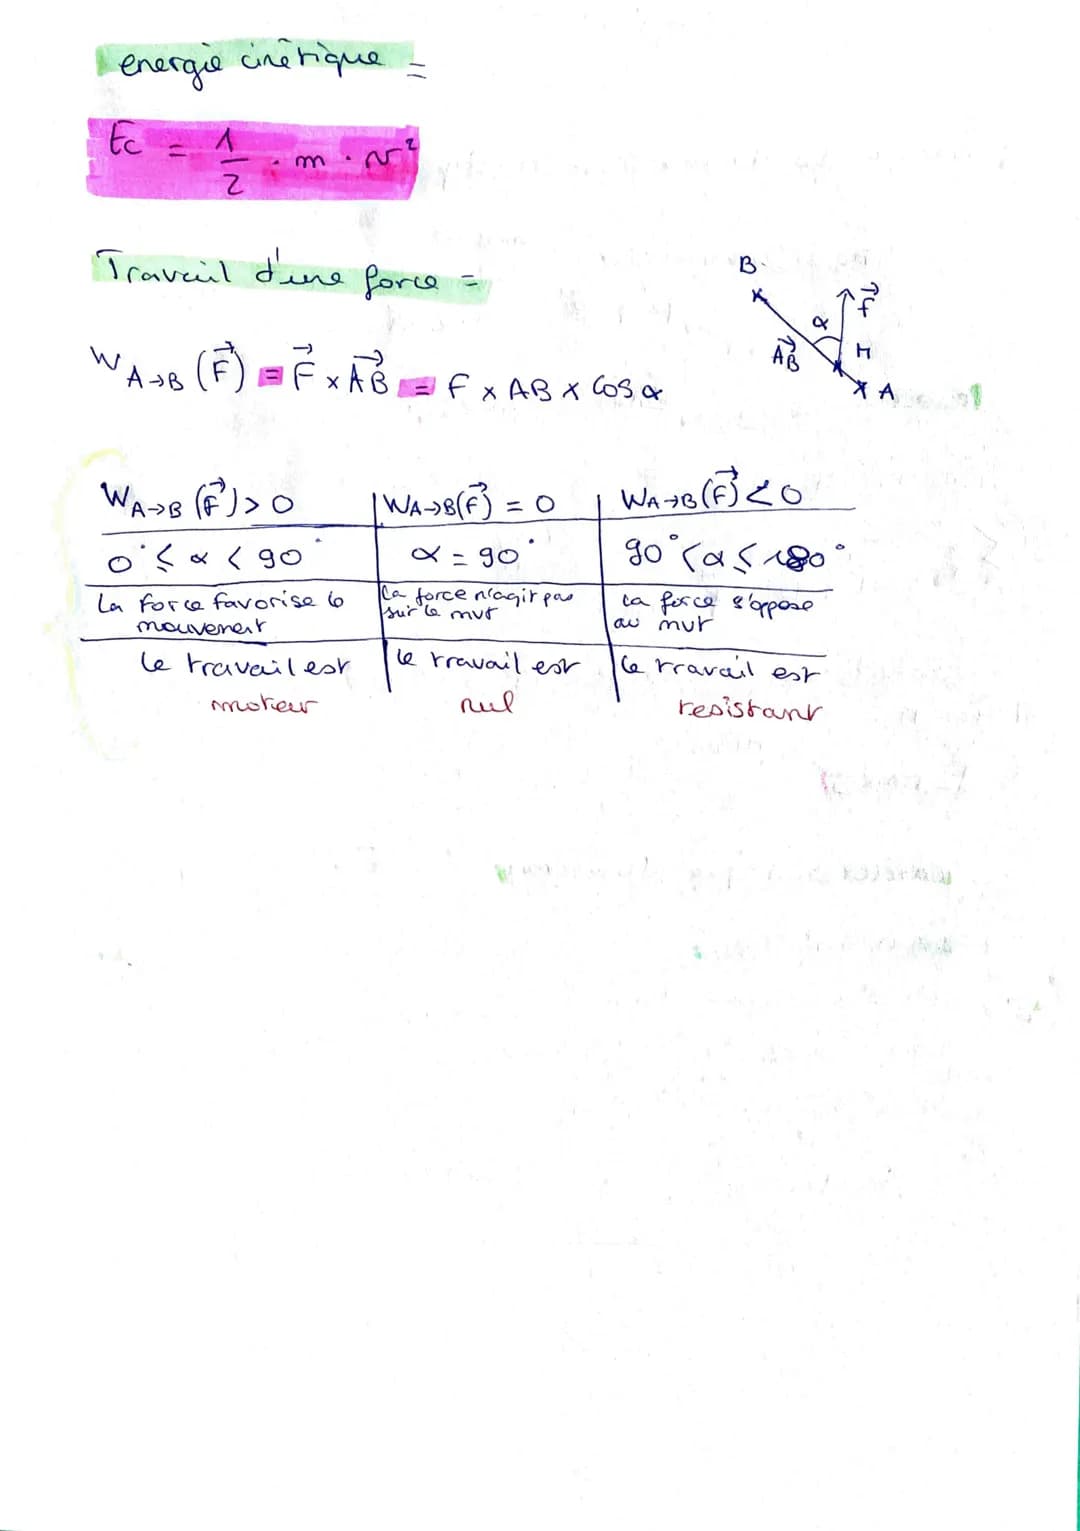 energie cinétique =
Ec = 1/2 . m . v²
Travail d'une force =
W A→B (F⃗) = F⃗ × AB⃗ = F × AB × cos α
B
F⃗
α
AB⃗
M
A
WA→B (F⃗) > 0 | WA→B(F⃗) = 0 | WA→B(F⃗) < 0
0° ≤ α < 90° | α = 90° | 90° < α ≤ 180°
La force favorise le mouvement | La force n'agit pas sur le mvt | La force s'oppose au mvt
le travail est moteur | le travail est nul | le travail est resistant